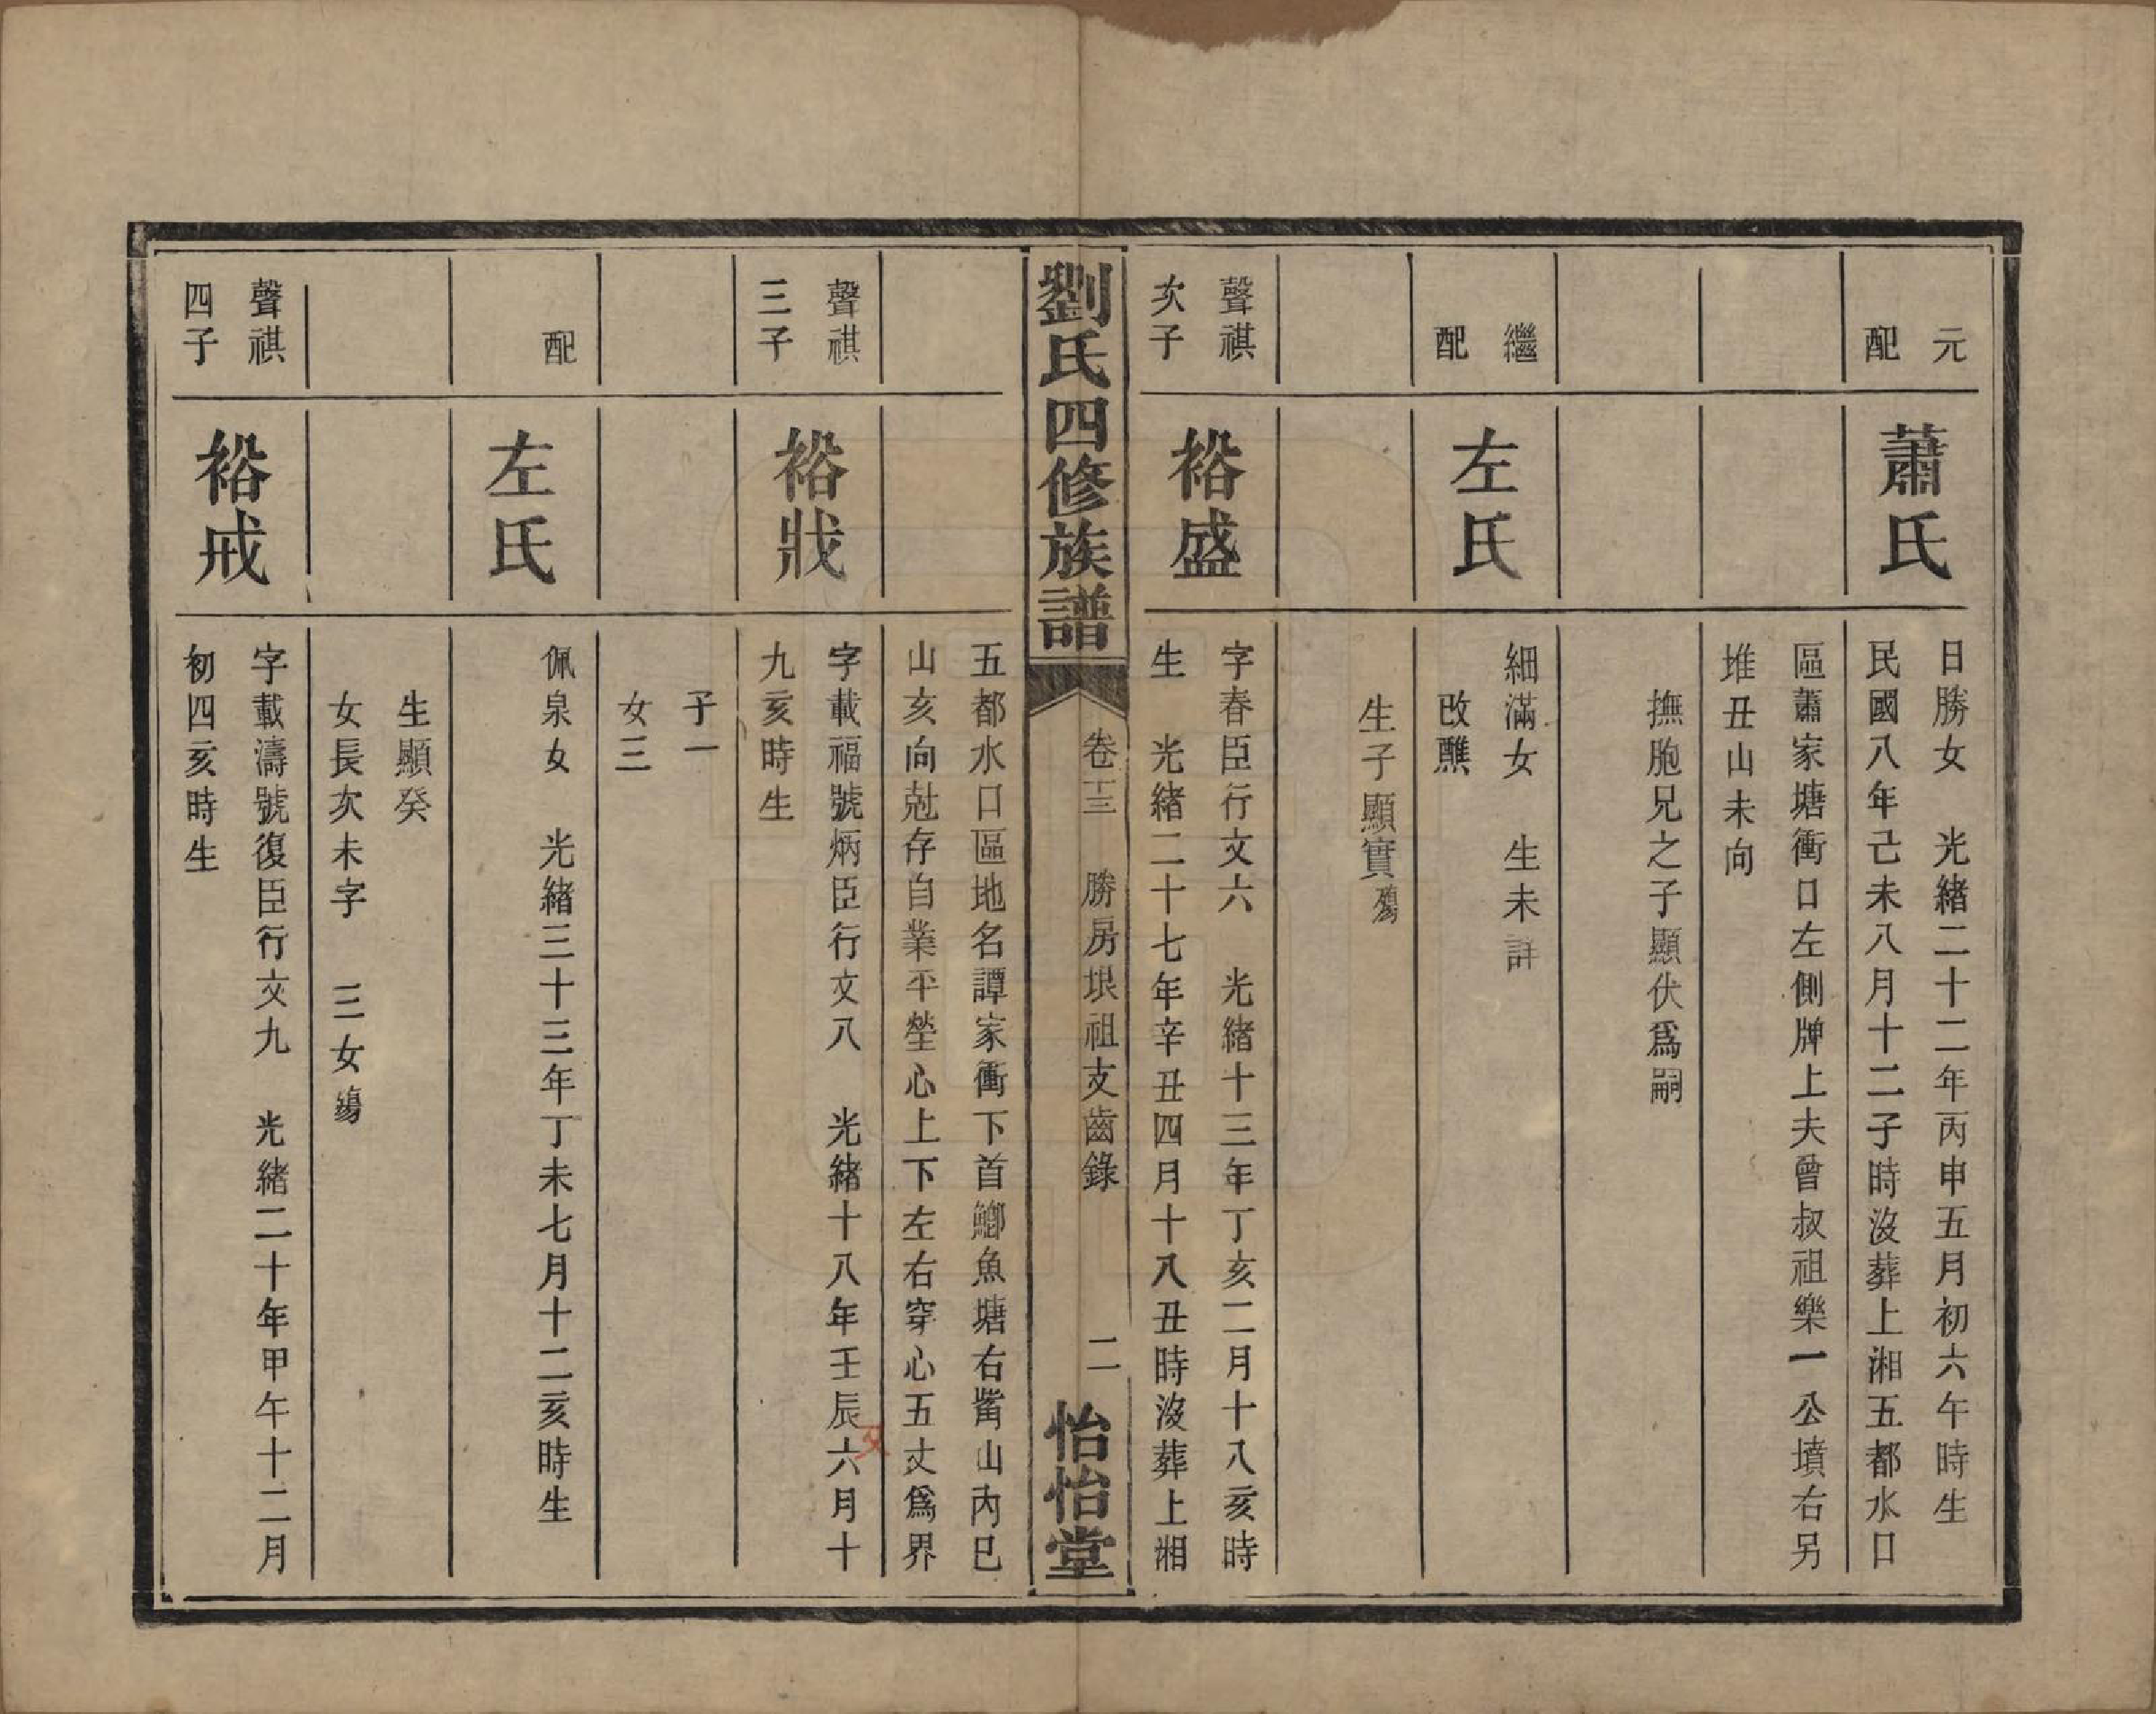 元
配
蕭氏
日勝女　光緒二十二年丙申五月初六午時生
民國八年己未八月十二子時沒葬上湘五都水口
區蕭家塘衝口左側牌上夫曾叔祖樂一公墳右另
堆丑山未向
撫胞兄之子顯伏爲嗣
繼
配
左氏
細滿女　生未詳
改醮
生子顯實殤
聲祺
次子
裕盛
字春臣行文六　光緒十三年丁亥二月十八亥時
生　光緒二十七年辛丑四月十八丑時沒葬上湘
劉氏四修族譜
卷十三　勝房垠祖支齒錄　二
怡怡堂
五都水口區地名譚家衝下首鯽魚塘右觜山丙巳
山亥向尅存自業平塋心上下左右穿心五丈爲界
聲祺
三子
裕戕
字載福號炳臣行文八　光緒十八年壬辰六月十
九亥時生
子一
女三
配
左氏
佩泉女　光緒三十三年丁未七月十二亥時生
生顯癸
女長次未字　三女殤
聲祺
四子
裕戒
字載濤號復臣行文九　光緒二十年甲午十二月
初四亥時生